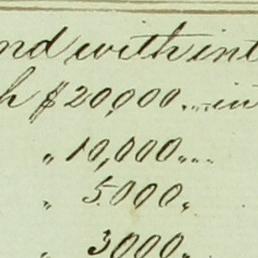 and with int
h $20,000...in
" 10,000...
" 5,000,
" 3,000,